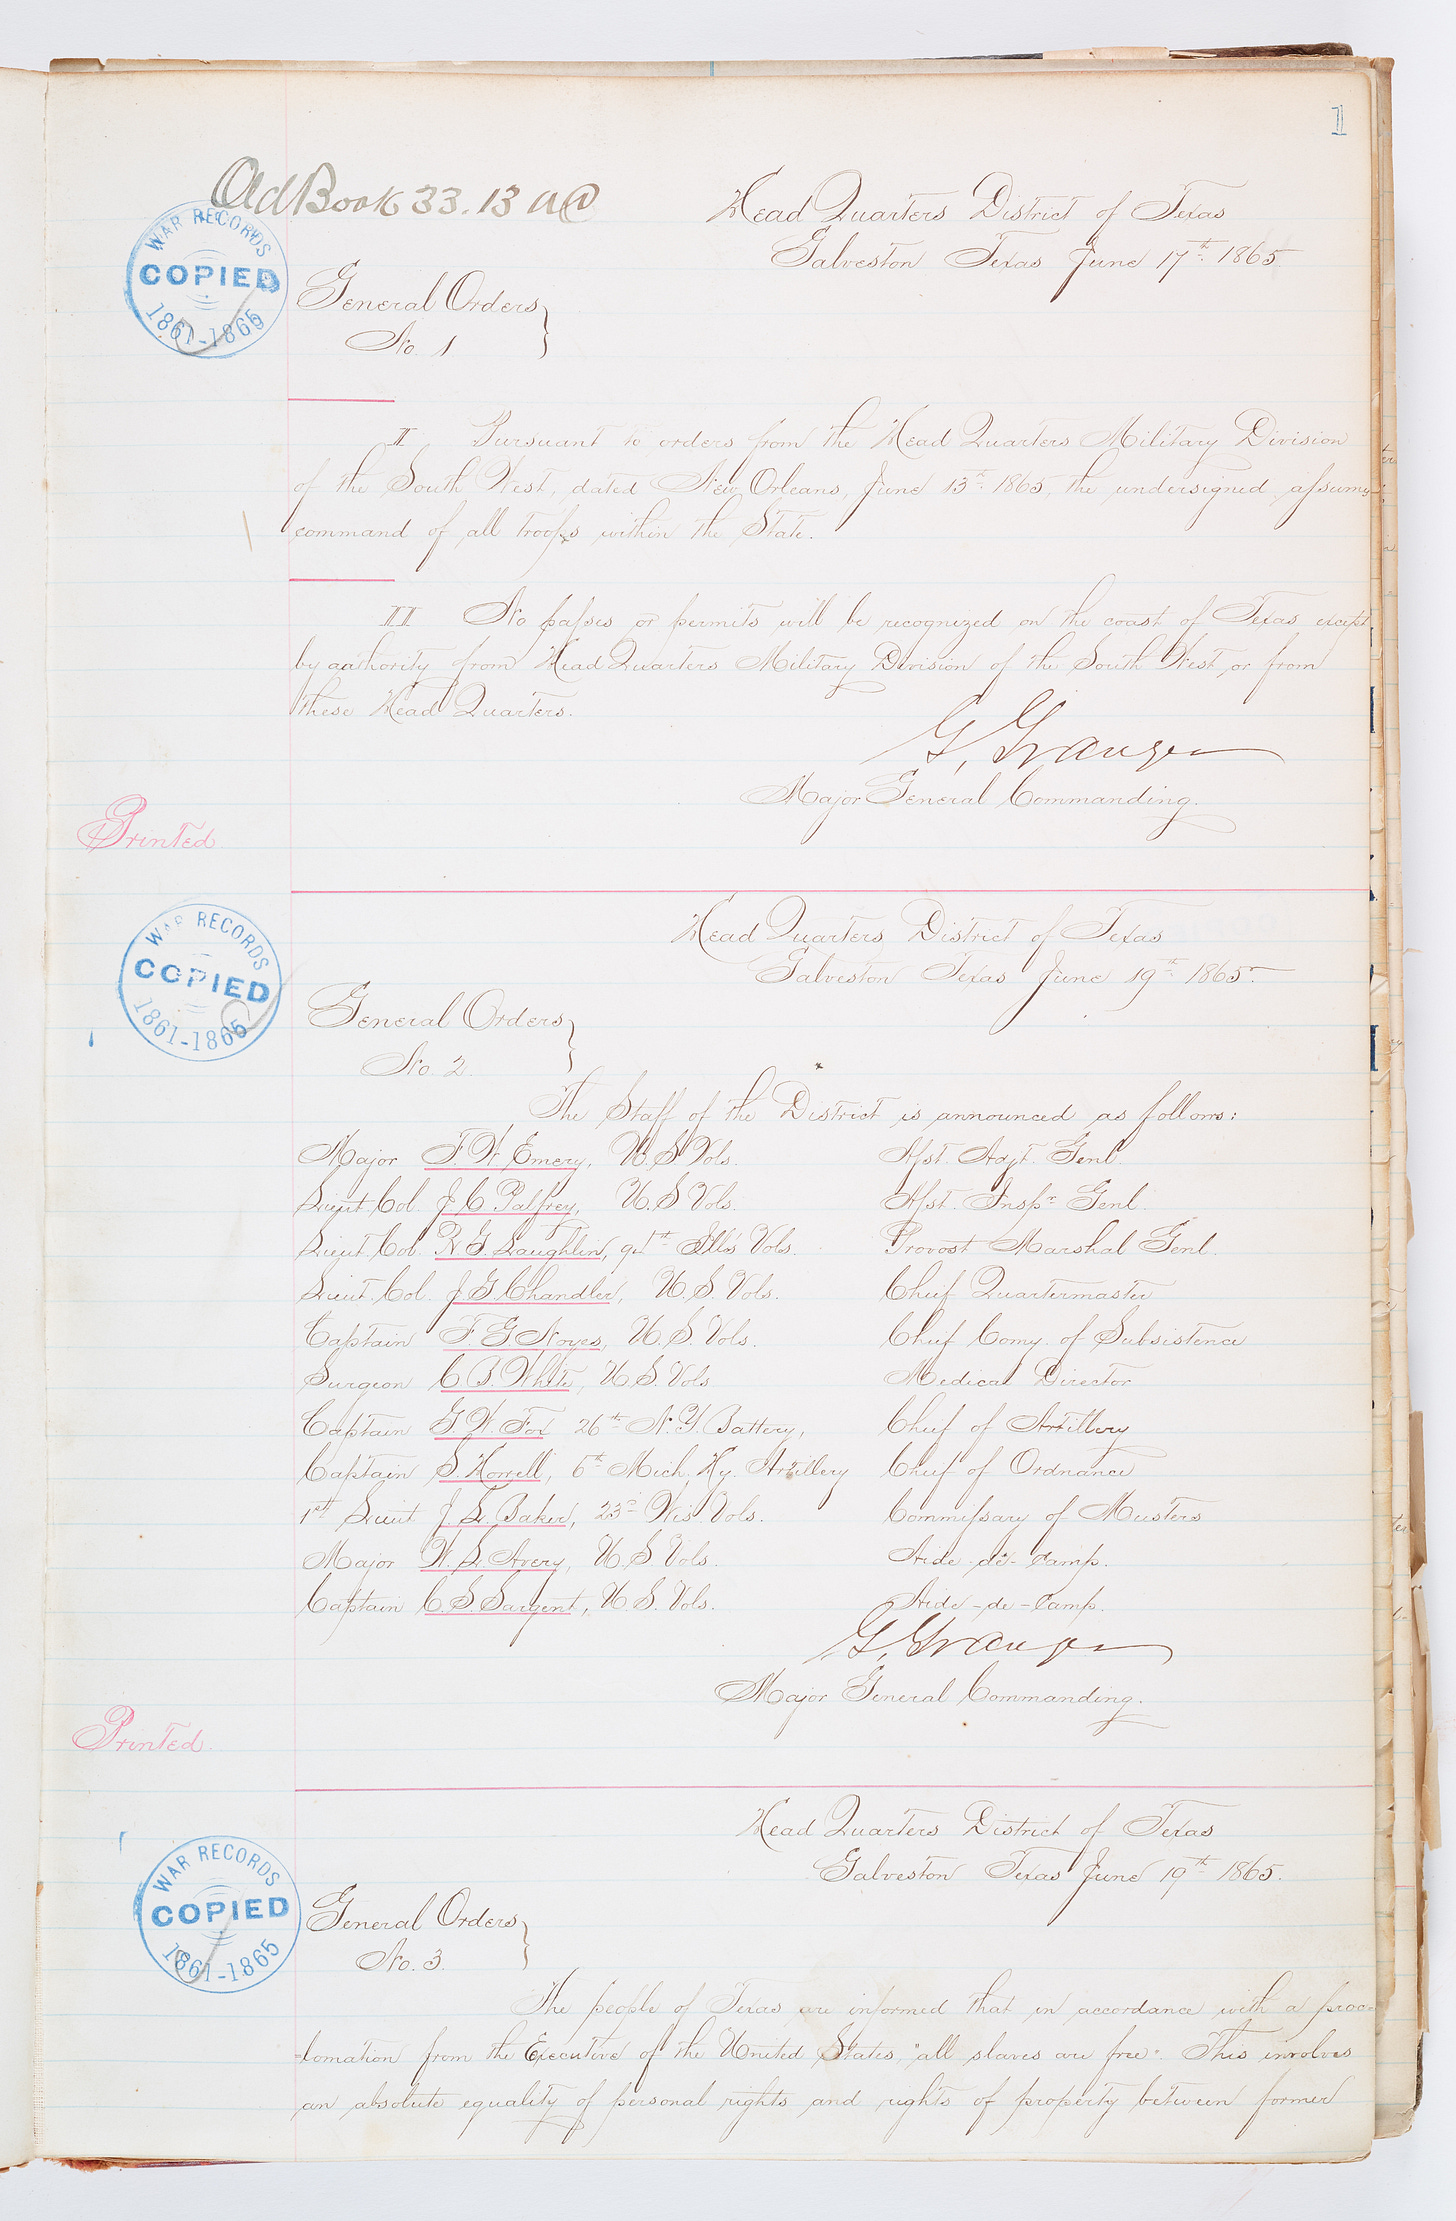 1
Old Book 33. 13 A@
Head Quarters District of Texas
Galveston Texas June 17th 1865
WAR RECORDS
COPIED
1861-1865
General Orders
No. 1
I Pursuant to orders from the Head Quarters Military Division
of the South West, dated New Orleans, June 13th 1865, the undersigned assumes
command of all troops within the State.
II No passes or permits will be recognized on the coast of Texas except
by authority from Head Quarters Military Division of the South West or from
these Head Quarters.
G. Granger
Major General Commanding.
Printed
Head Quarters District of Texas
Galveston Texas June 19th 1865.
WAR RECORDS
COPIED
1861-1865
General Orders
No. 2.
The Staff of the District is announced as follows:
Major F. W. Emery, U. S. Vols. Asst. Adjt. Genl.
Lieut. Col. J. C. Palfrey, U. S. Vols. Asst. Inspr. Genl.
Lieut. Col. R. G. Laughlin, 94th Ills Vols. Provost Marshal Genl.
Lieut. Col. J. G. Chandler, U. S. Vols. Chief Quartermaster
Captain F. G. Noyes, U. S. Vols. Chief Comy. of Subsistence
Surgeon C. B. White, U. S. Vols Medical Director
Captain G. W. Fox 26th N. Y. Battery, Chief of Artillery
Captain S. Howell, 6th Mich. Hy. Artillery Chief of Ordnance
1st Lieut. J. L. Baker, 23d Wis. Vols. Commissary of Musters
Major W. L. Avery, U. S. Vols. Aide-de-Camp.
Captain C. S. Sargent, U. S. Vols. Aide-de-Camp.
G. Granger
Major General Commanding.
Printed.
Head Quarters District of Texas
Galveston Texas June 19th 1865.
WAR RECORDS
COPIED
1861-1865
General Orders
No. 3.
The people of Texas are informed that in accordance with a proc-
=lamation from the Executive of the United States, "all slaves are free". This involves
an absolute equality of personal rights and rights of property between former